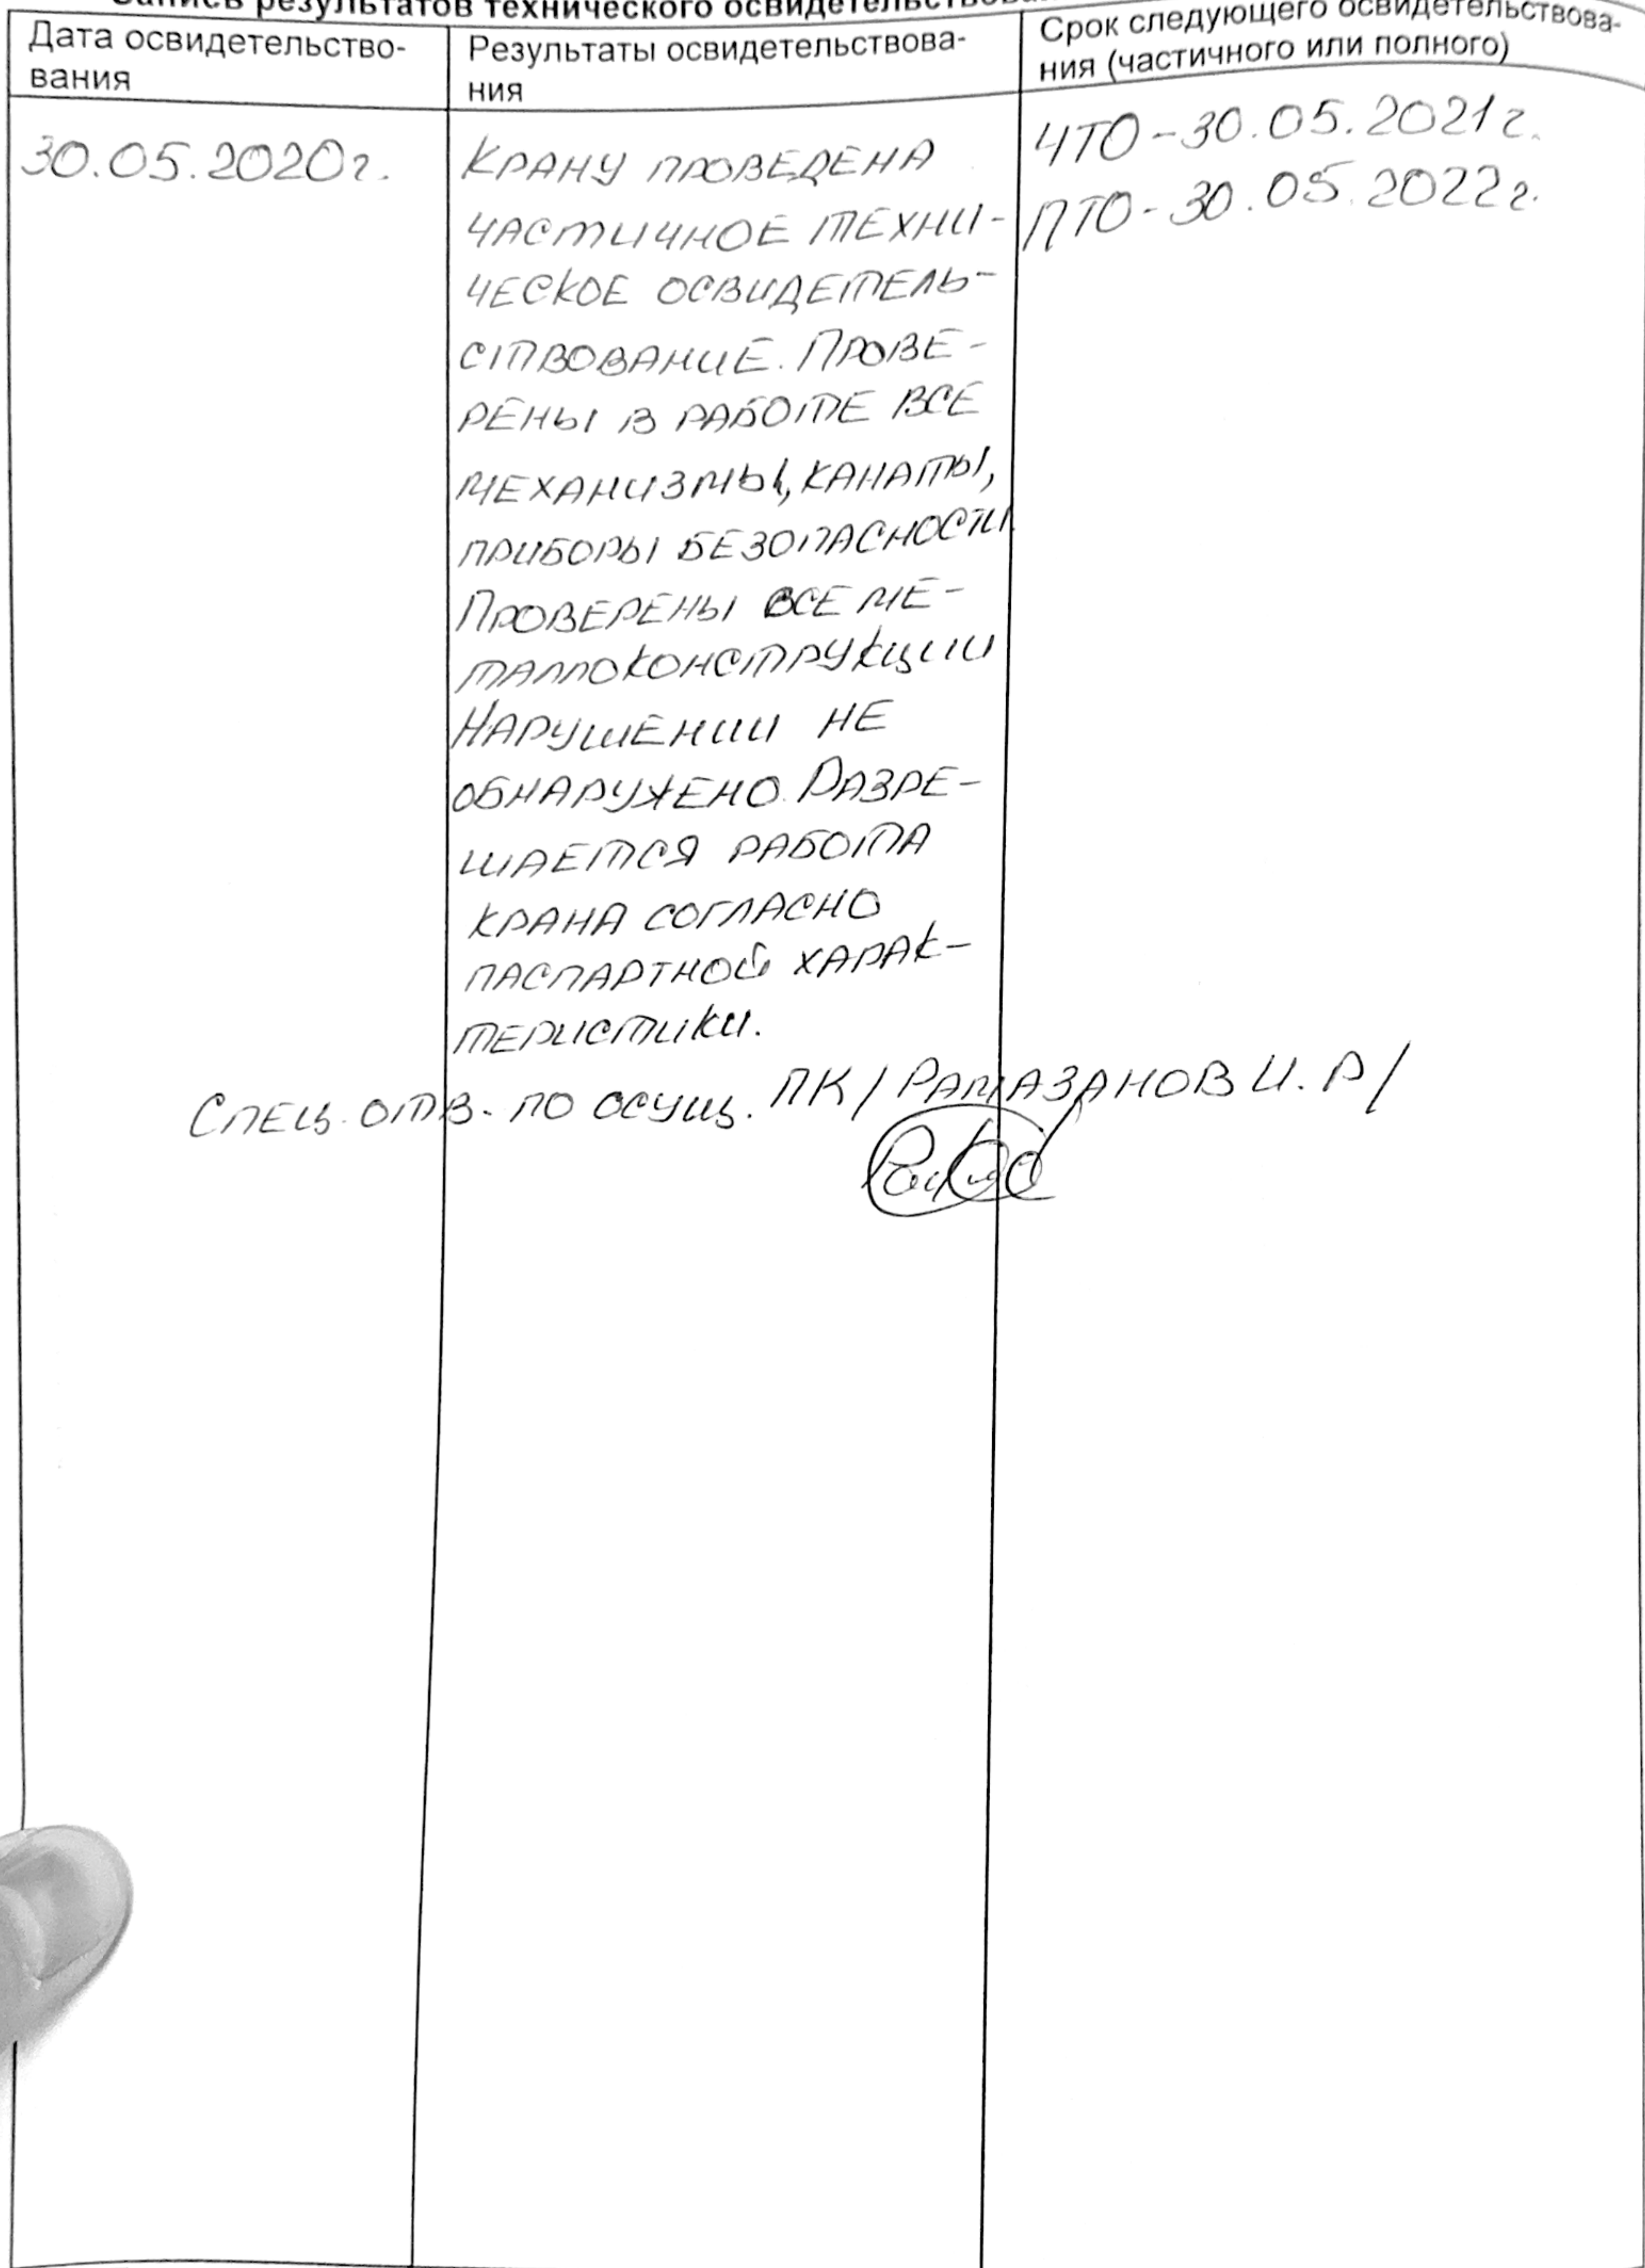 Запись результатов технического освидетельствова
Дата освидетельство-
вания
Результаты освидетельствова-
ния
Срок следующего освидетельствова-
ния (частичного или полного)
30.05.2020г.
Крану проведена
частичное техни-
ческое освидетель-
ствование. Прове-
рены в работе все
механизмы, канаты,
приборы безопасности
Проверены все ме-
таллоконструкции
Нарушении не
обнаружено. Разре-
шается работа
крана согласно
паспартной харак-
теристики.
ЧТО-30.05.2021г.
ПТО-30.05.2022г.
Спец. отв. по осущ. ПК /Рамазанов И.Р/